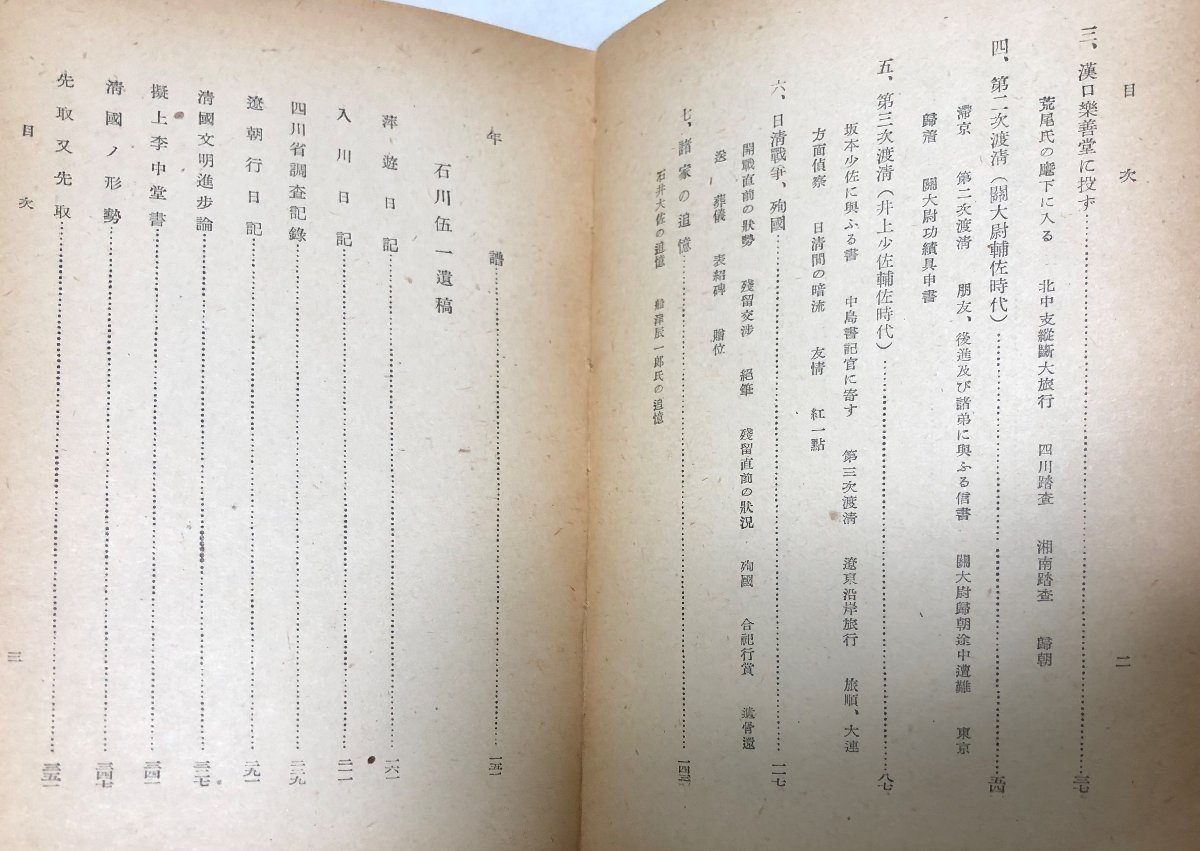 目次
二
三、漢口樂善堂に投ず……三七
荒尾氏の麾下に入る 北中支縱斷大旅行 四川踏査 湘南踏査 歸朝
四、第二次渡清（關大尉輔佐時代）……五四
滯京 第二次渡清 朋友、後進及び諸弟に與ふる信書 關大尉歸朝途中遭難 東京
歸着 關大尉功績具申書
五、第三次渡清（井上少佐輔佐時代）……八七
坂本少佐に與ふる書 中島書記官に寄す 第三次渡清 遼東沿岸旅行 旅順、大連
方面偵察 日清間の暗流 友情 紅一點
六、日清戰爭、殉國……一一七
開戰直前の狀勢 殘留交渉 絕筆 殘留直前の狀況 殉國 合祀行賞 遺骨還
送 葬儀 表紹碑 贈位
七、諸家の追憶……一四三
石井大佐の追憶 船津辰一郎氏の追憶
年譜……一五一
石川伍一遺稿
萍遊日記……一六一
入川日記……二一一
四川省調査記錄……二三九
遼朝行日記……二九一
清國文明進步論……三二七
擬上李中堂書……三四一
清國ノ形勢……三四七
先取又先取……三五一
目次
三